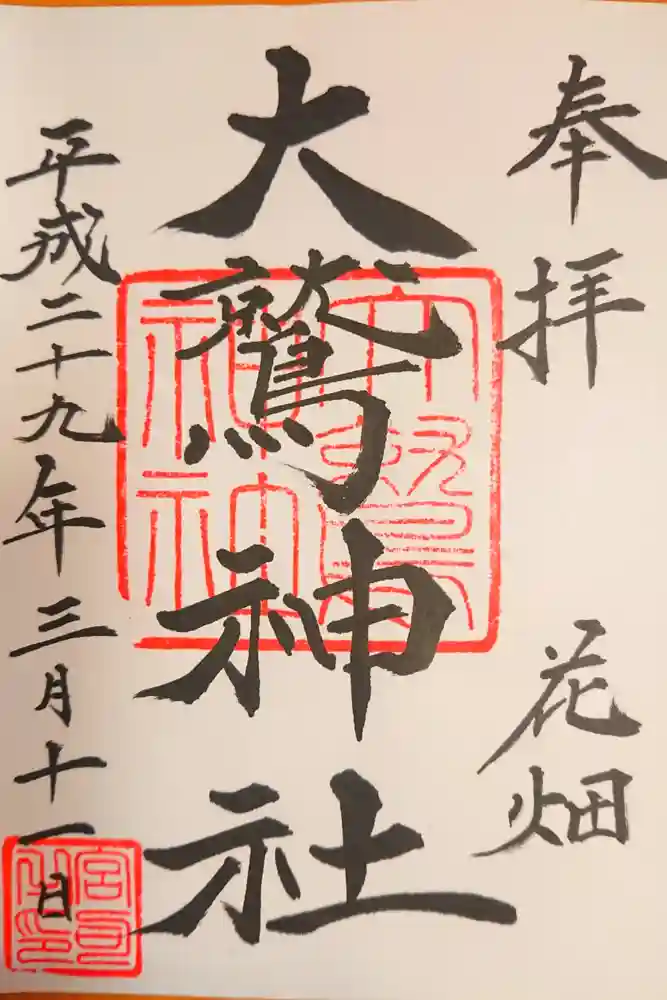 奉拝
花畑
大鷲神社
平成二十九年三月十一日
宮司之印